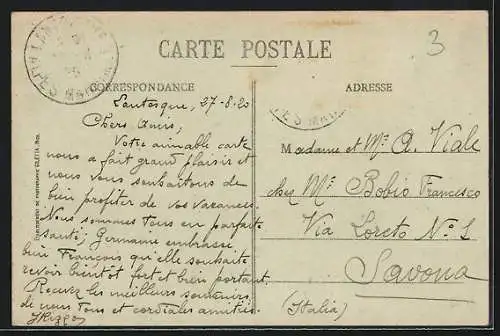 CARTE POSTALE
3
CORRESPONDANCE
ADRESSE
Lantosque, 27-8-20
Chers Amis,
Votre aimable carte
nous a fait grand plaisir et
nous vous souhaitons de
bien profiter de vos vacances.
Nous sommes tous en parfaite
santé; Germaine embrasse
bien François qu'elle souhaite
revoir bientôt fort et bien portant.
Recevez les meilleurs souvenirs
de nous tous et cordiales amitiés.
Madame et Mr A. Viale
chez Mr Bobio Francesco
Via Loreto No 1
Savona
(Italia)